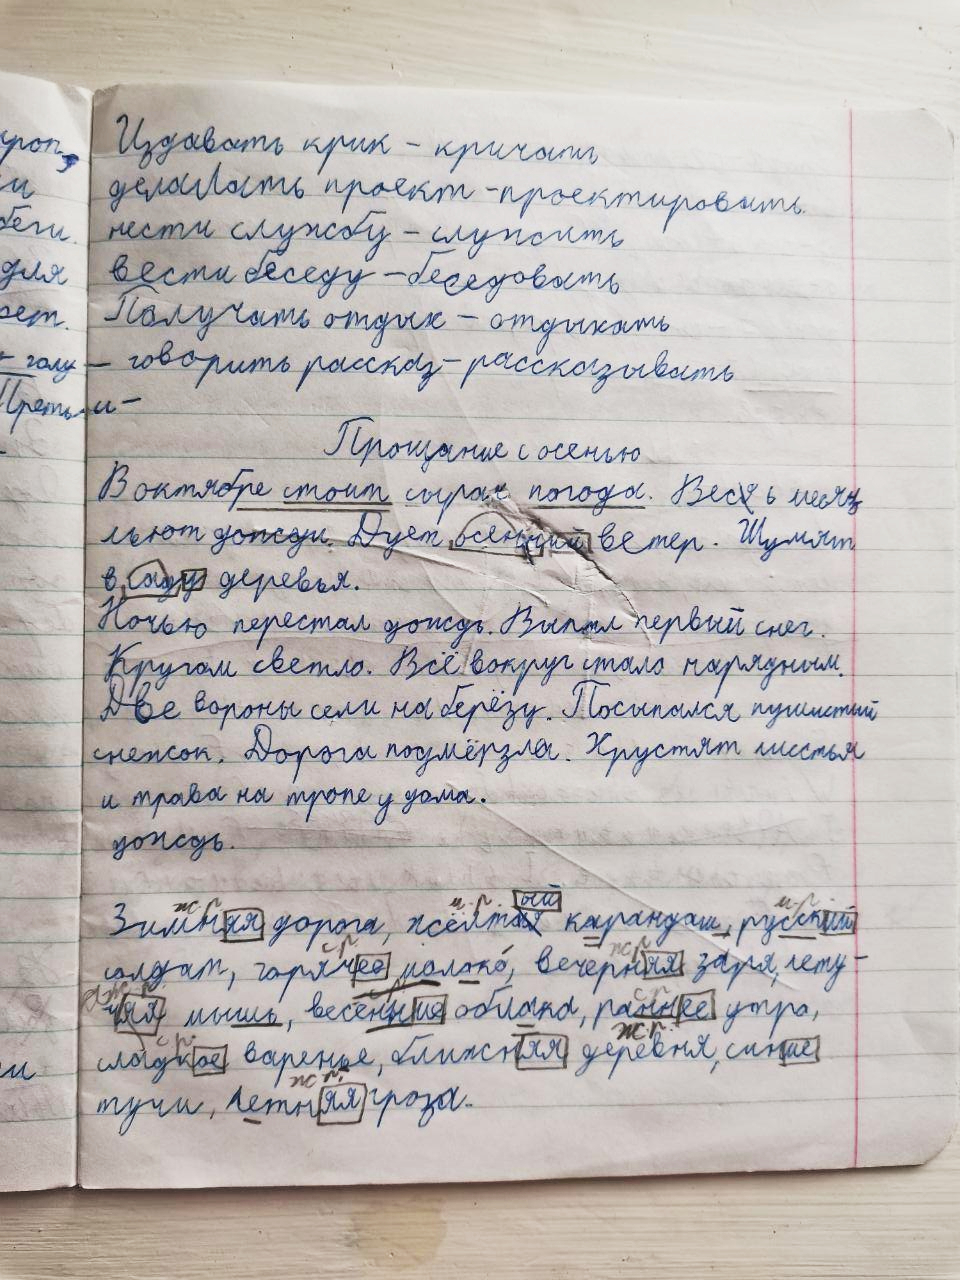 Издавать крик - кричать
делать проект - проектировать
нести службу - служить
вести беседу - беседовать
Получать отдых - отдыхать
говорить рассказ - рассказывать
Прощание с осенью
В октябре стоит сырая погода. Весь месяц
льют дожди. Дует осенний ветер. Шумят
в саду деревья.
Ночью перестал дождь. Выпал первый снег.
Кругом светло. Всё вокруг стало нарядным.
Две вороны сели на берёзу. Посыпался пушистый
снежок. Дорога подмёрзла. Хрустят листья
и трава на тропе у дома.
дождь.
ж.р. м.р. ый м.р.
Зимняя дорога, жёлтый карандаш, русский
с.р. ж.р.
солдат, горячее молоко, вечерняя заря, лету-
ж.р. с.р.
чая мышь, весенние облака, раннее утро,
с.р. ж.р.
сладкое варенье, ближняя деревня, синие
ж.р.
тучи, летняя гроза.